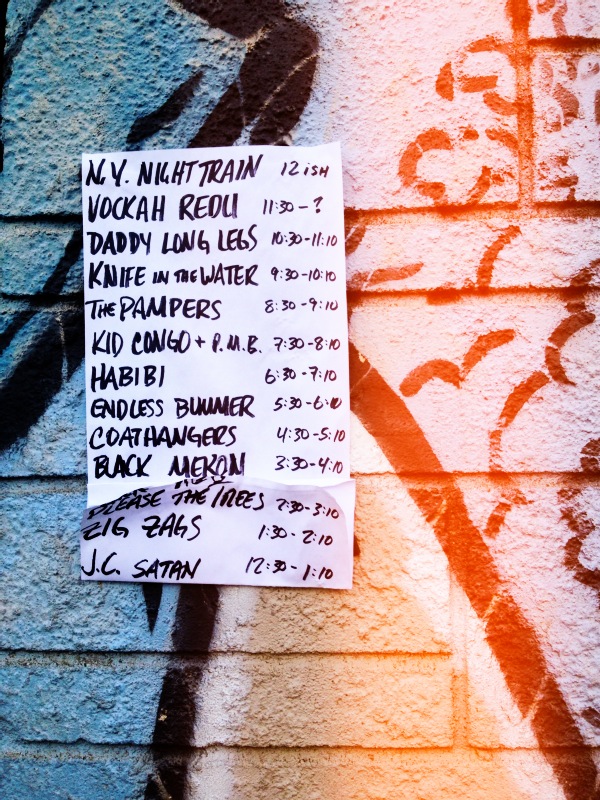 N.Y. NIGHT TRAIN 12ISH
VOCKAH REDU 11:30-?
DADDY LONG LEGS 10:30-11:10
KNIFE IN THE WATER 9:30-10:10
THE PAMPERS 8:30-9:10
KID CONGO + P.M.B. 7:30-8:10
HABIBI 6:30-7:10
ENDLESS BUMMER 5:30-6:10
COATHANGERS 4:30-5:10
BLACK MEKON 3:30-4:10
PLEASE THE TREES 2:30-3:10
ZIG ZAGS 1:30-2:10
J.C. SATAN 12:30-1:10